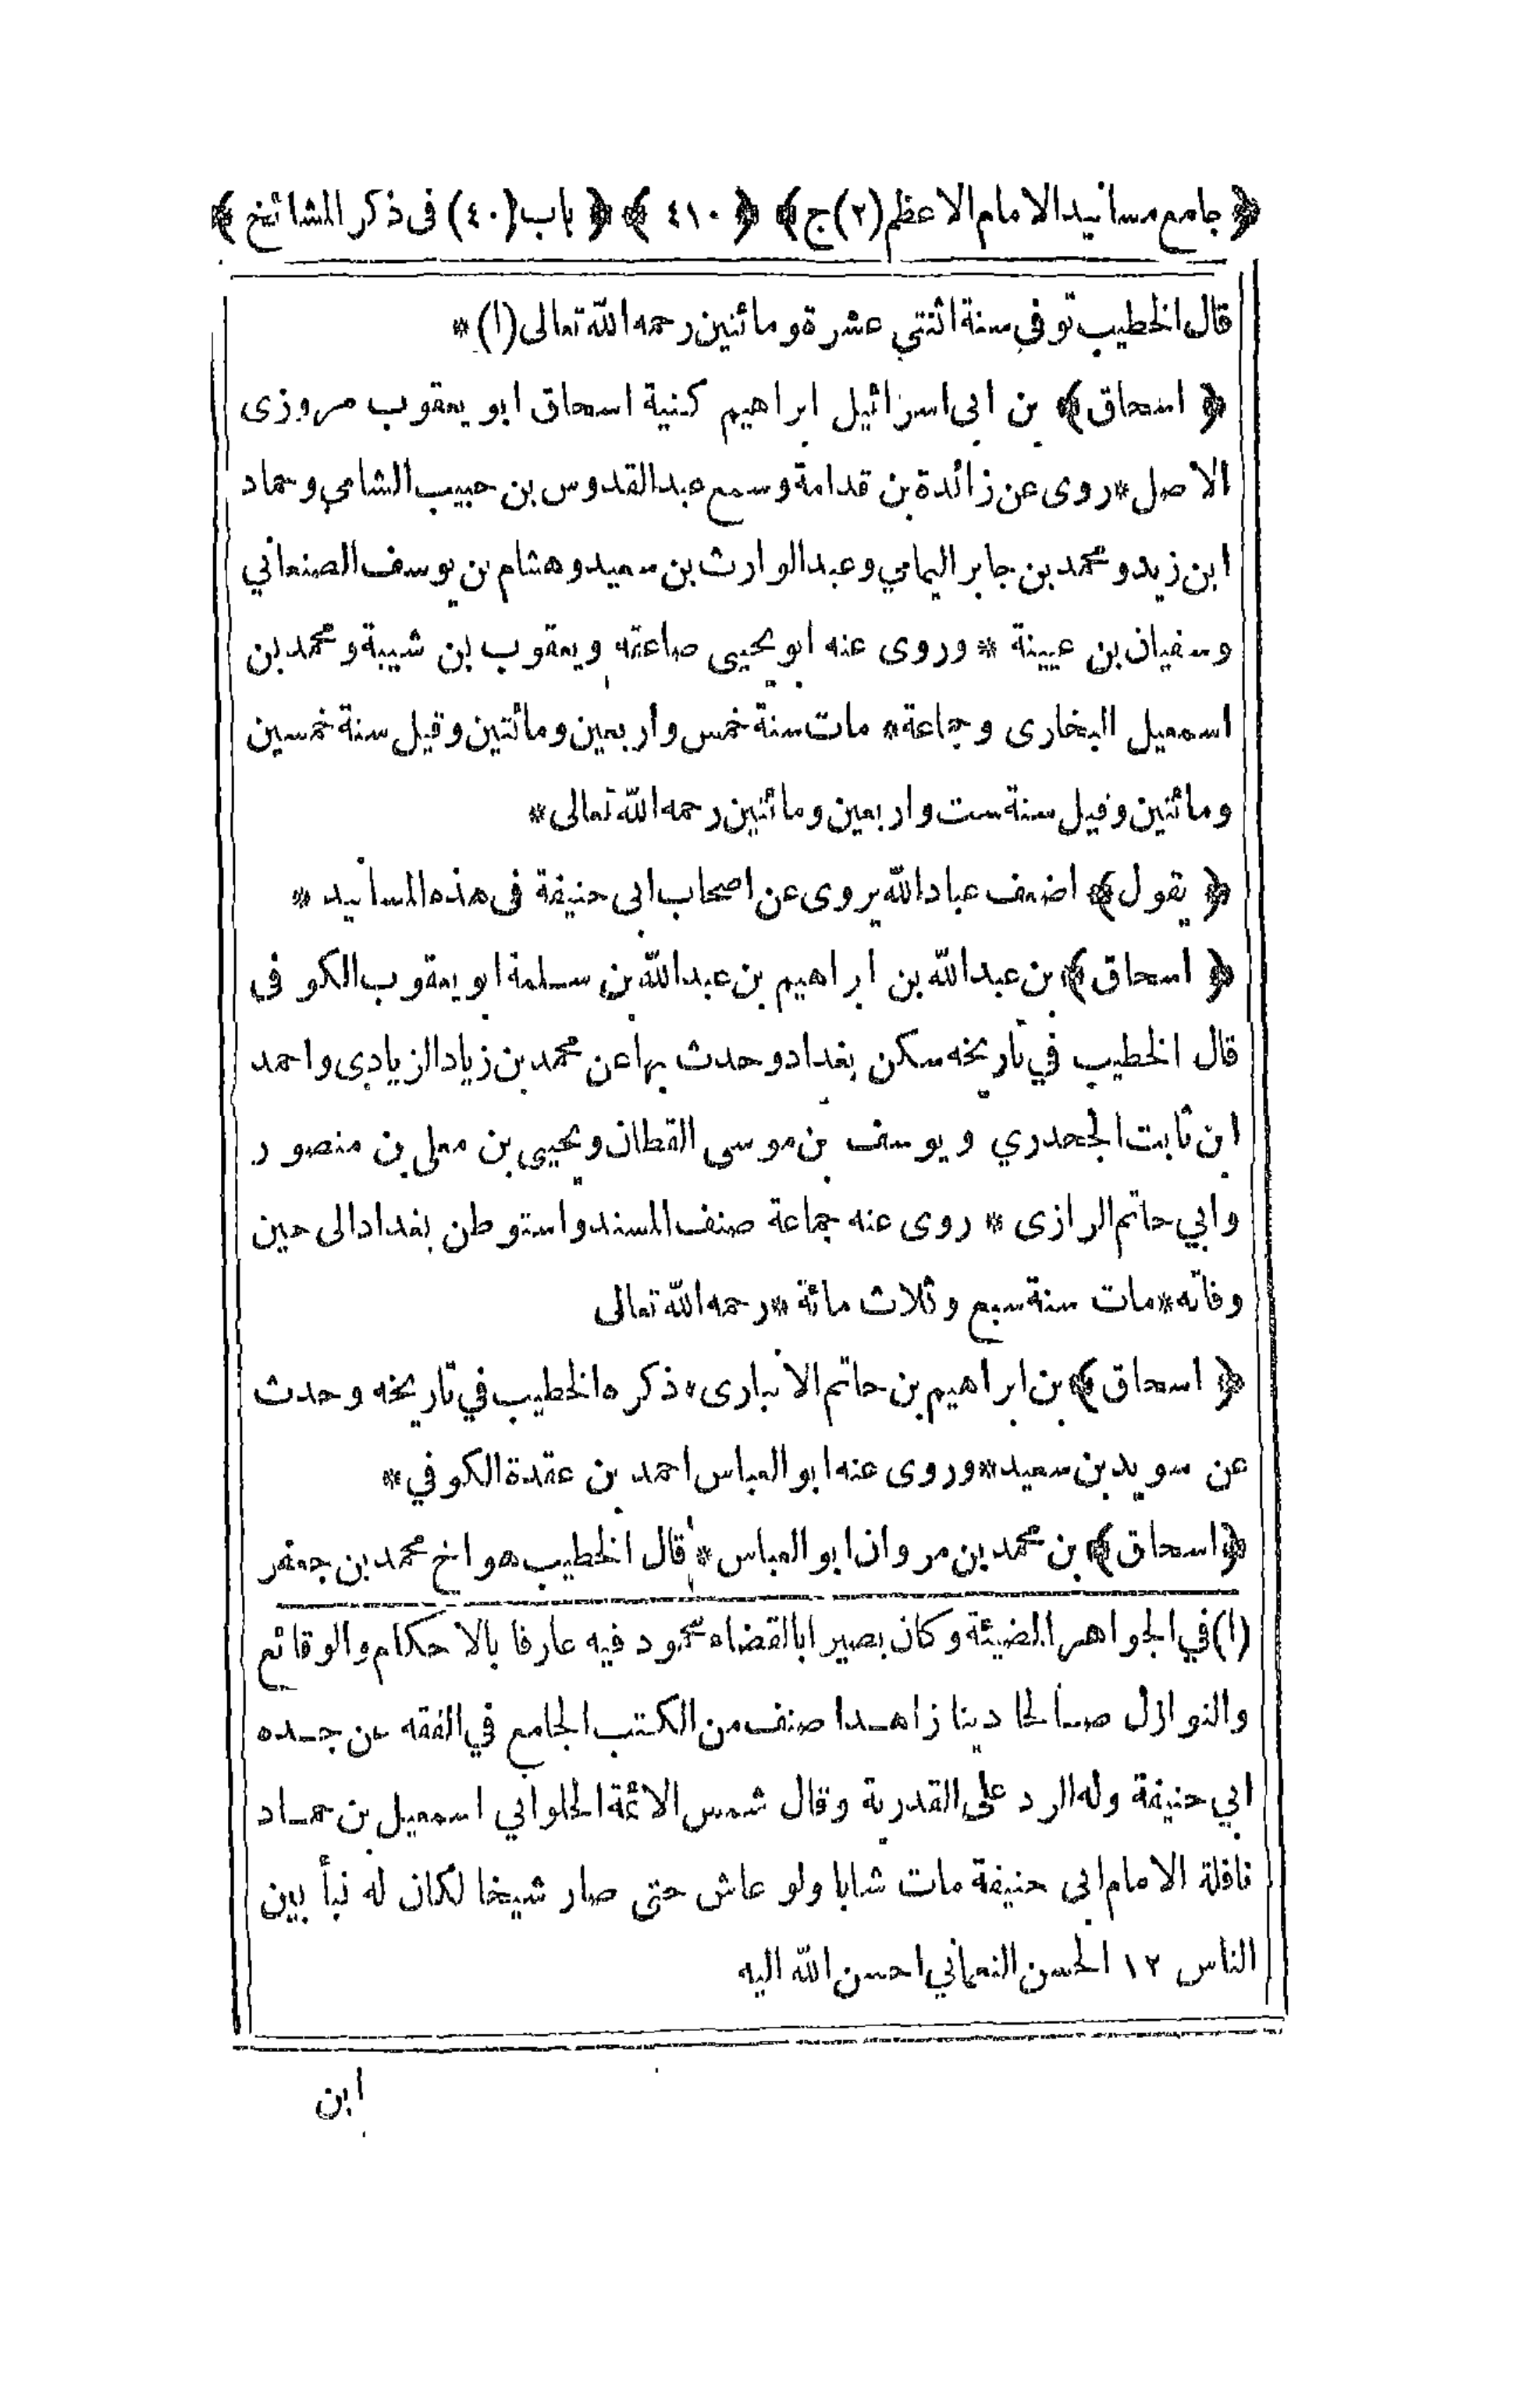 ﴿ جامع مسانيد الامام الاعظم (٢) ج ﴾ ﴿ ٤١٠ ﴾ ﴿ باب (٤٠) فى ذكر المشائخ ﴾
قال الخطيب توفي سنة اثنتي عشرة ومائتين رحمه الله تعالى (١) *
﴿ اسحاق ﴾ بن ابى اسرائيل ابراهيم كنية اسحاق ابو يعقوب مروزى
الاصل * روى عن زائدة بن قدامة وسمع عبد القدوس بن حبيب الشامي وحماد
ابن زيد ومحمد بن جابر اليمامي وعبد الوارث بن سعيد وهشام بن يوسف الصنعاني
وسفيان بن عيينة * وروى عنه ابو يحيى صاعقه ويعقوب بن شيبة ومحمد بن
اسمعيل البخارى وجماعة * مات سنة خمس واربعين ومائتين وقيل سنة خمسين
ومائتين وقيل سنة ست واربعين ومائتين رحمه الله تعالى *
﴿ يقول ﴾ اضعف عباد الله يروى عن اصحاب ابى حنيفة فى هذه المسانيد *
﴿ اسحاق ﴾ بن عبد الله بن ابراهيم بن عبد الله بن سلمة ابو يعقوب الكوفى
قال الخطيب في تاريخه سكن بغداد وحدث بها عن محمد بن زياد الزيادى واحمد
ابن ثابت الجحدري ويوسف بن موسى القطان ويحيى بن معلى بن منصور
وابي حاتم الرازى * روى عنه جماعة صنف المسند واستوطن بغداد الى حين
وفاته * مات سنة سبع وثلاث مائة * رحمه الله تعالى
﴿ اسحاق ﴾ بن ابراهيم بن حاتم الانبارى * ذكره الخطيب في تاريخه وحدث
عن سويد بن سعيد * وروى عنه ابو العباس احمد بن عقدة الكوفي *
﴿ اسحاق ﴾ بن محمد بن مروان ابو العباس * قال الخطيب هو اخ محمد بن جعفر
(١) في الجواهر المضيئة وكان بصيرا بالقضاء محمود فيه عارفا بالاحكام والوقائع
والنوازل صالحا دينا زاهدا صنف من الكتب الجامع في الفقه عن جده
ابي حنيفة وله الرد على القدرية وقال شمس الائمة الحلوانى اسمعيل بن حماد
نافلة الامام ابى حنيفة مات شابا ولو عاش حتى صار شيخا لكان له نبأ بين
الناس ١٢ الحسن النعماني احسن الله اليه
ابن